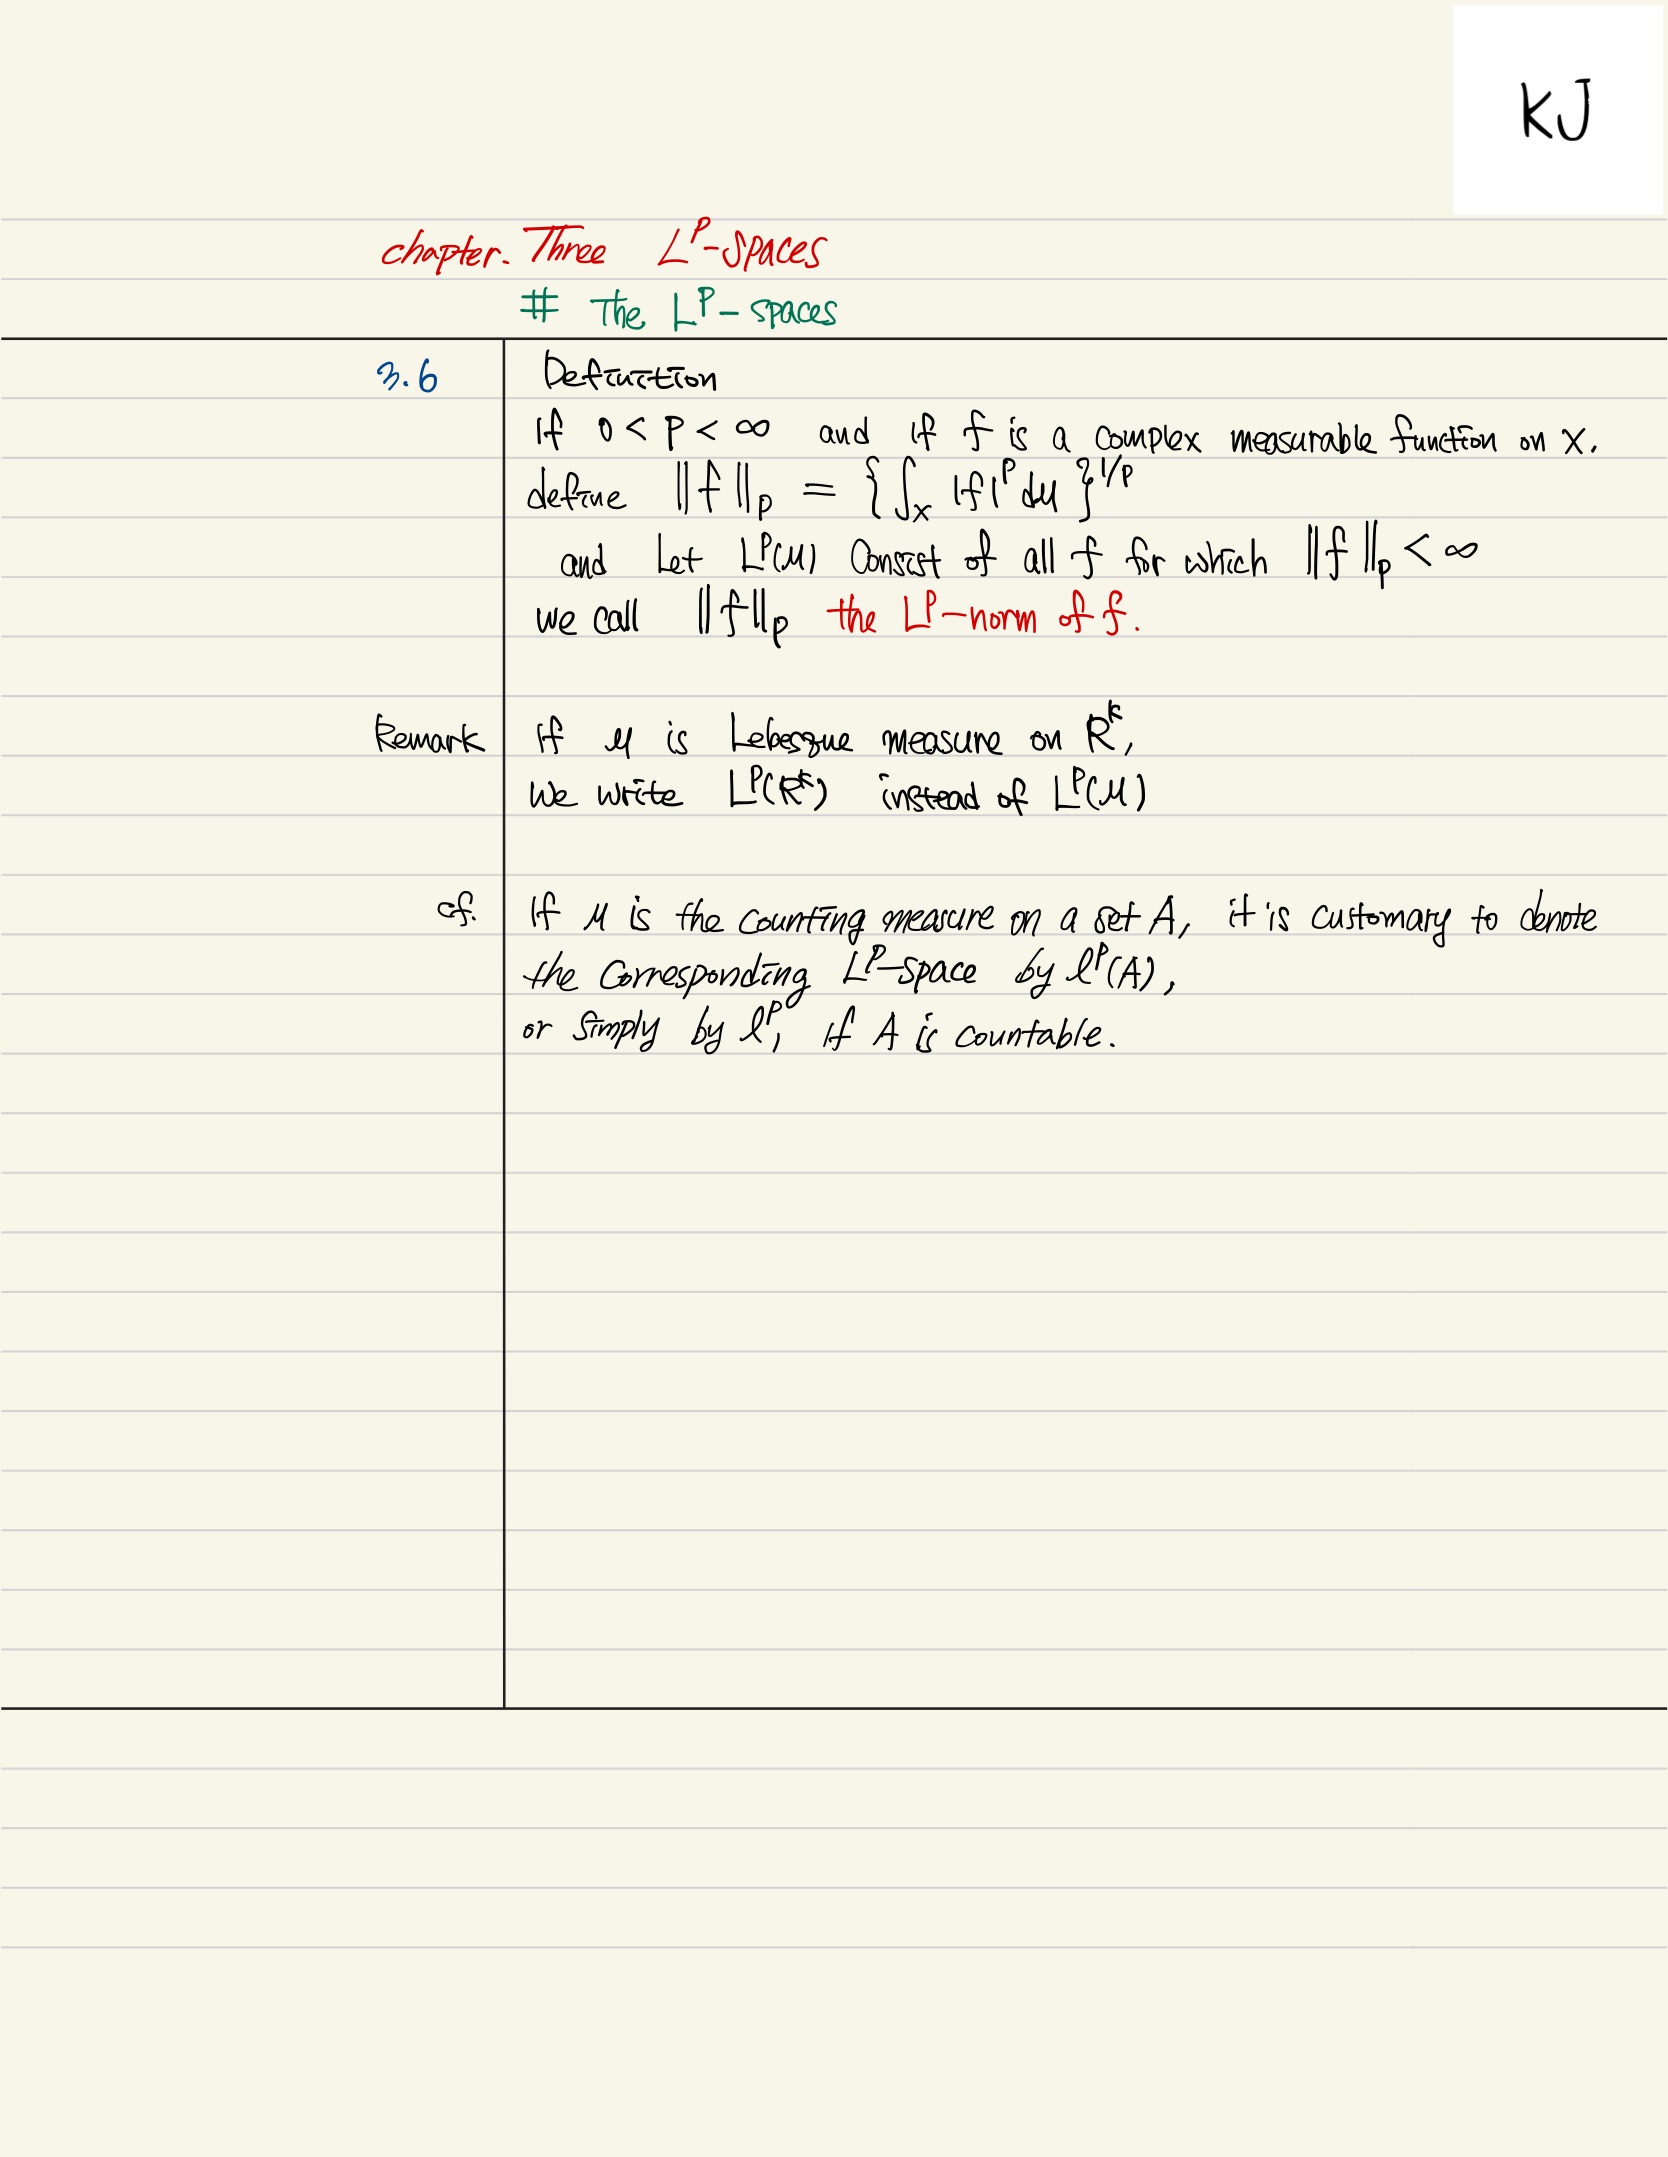 KJ
chapter. Three L^p-spaces
# The L^p-spaces
3.6 Definition
If 0 < p < ∞ and if f is a complex measurable function on X.
define ||f||_p = {∫_X |f|^p dμ}^{1/p}
and Let L^p(μ) Consist of all f for which ||f||_p < ∞
we call ||f||_p the L^p-norm of f.
Remark If μ is Lebesgue measure on R^k,
we write L^p(R^k) instead of L^p(μ)
cf. If μ is the counting measure on a set A, it is customary to denote
the Corresponding L^p-space by ℓ^p(A),
or simply by ℓ^p, if A is countable.